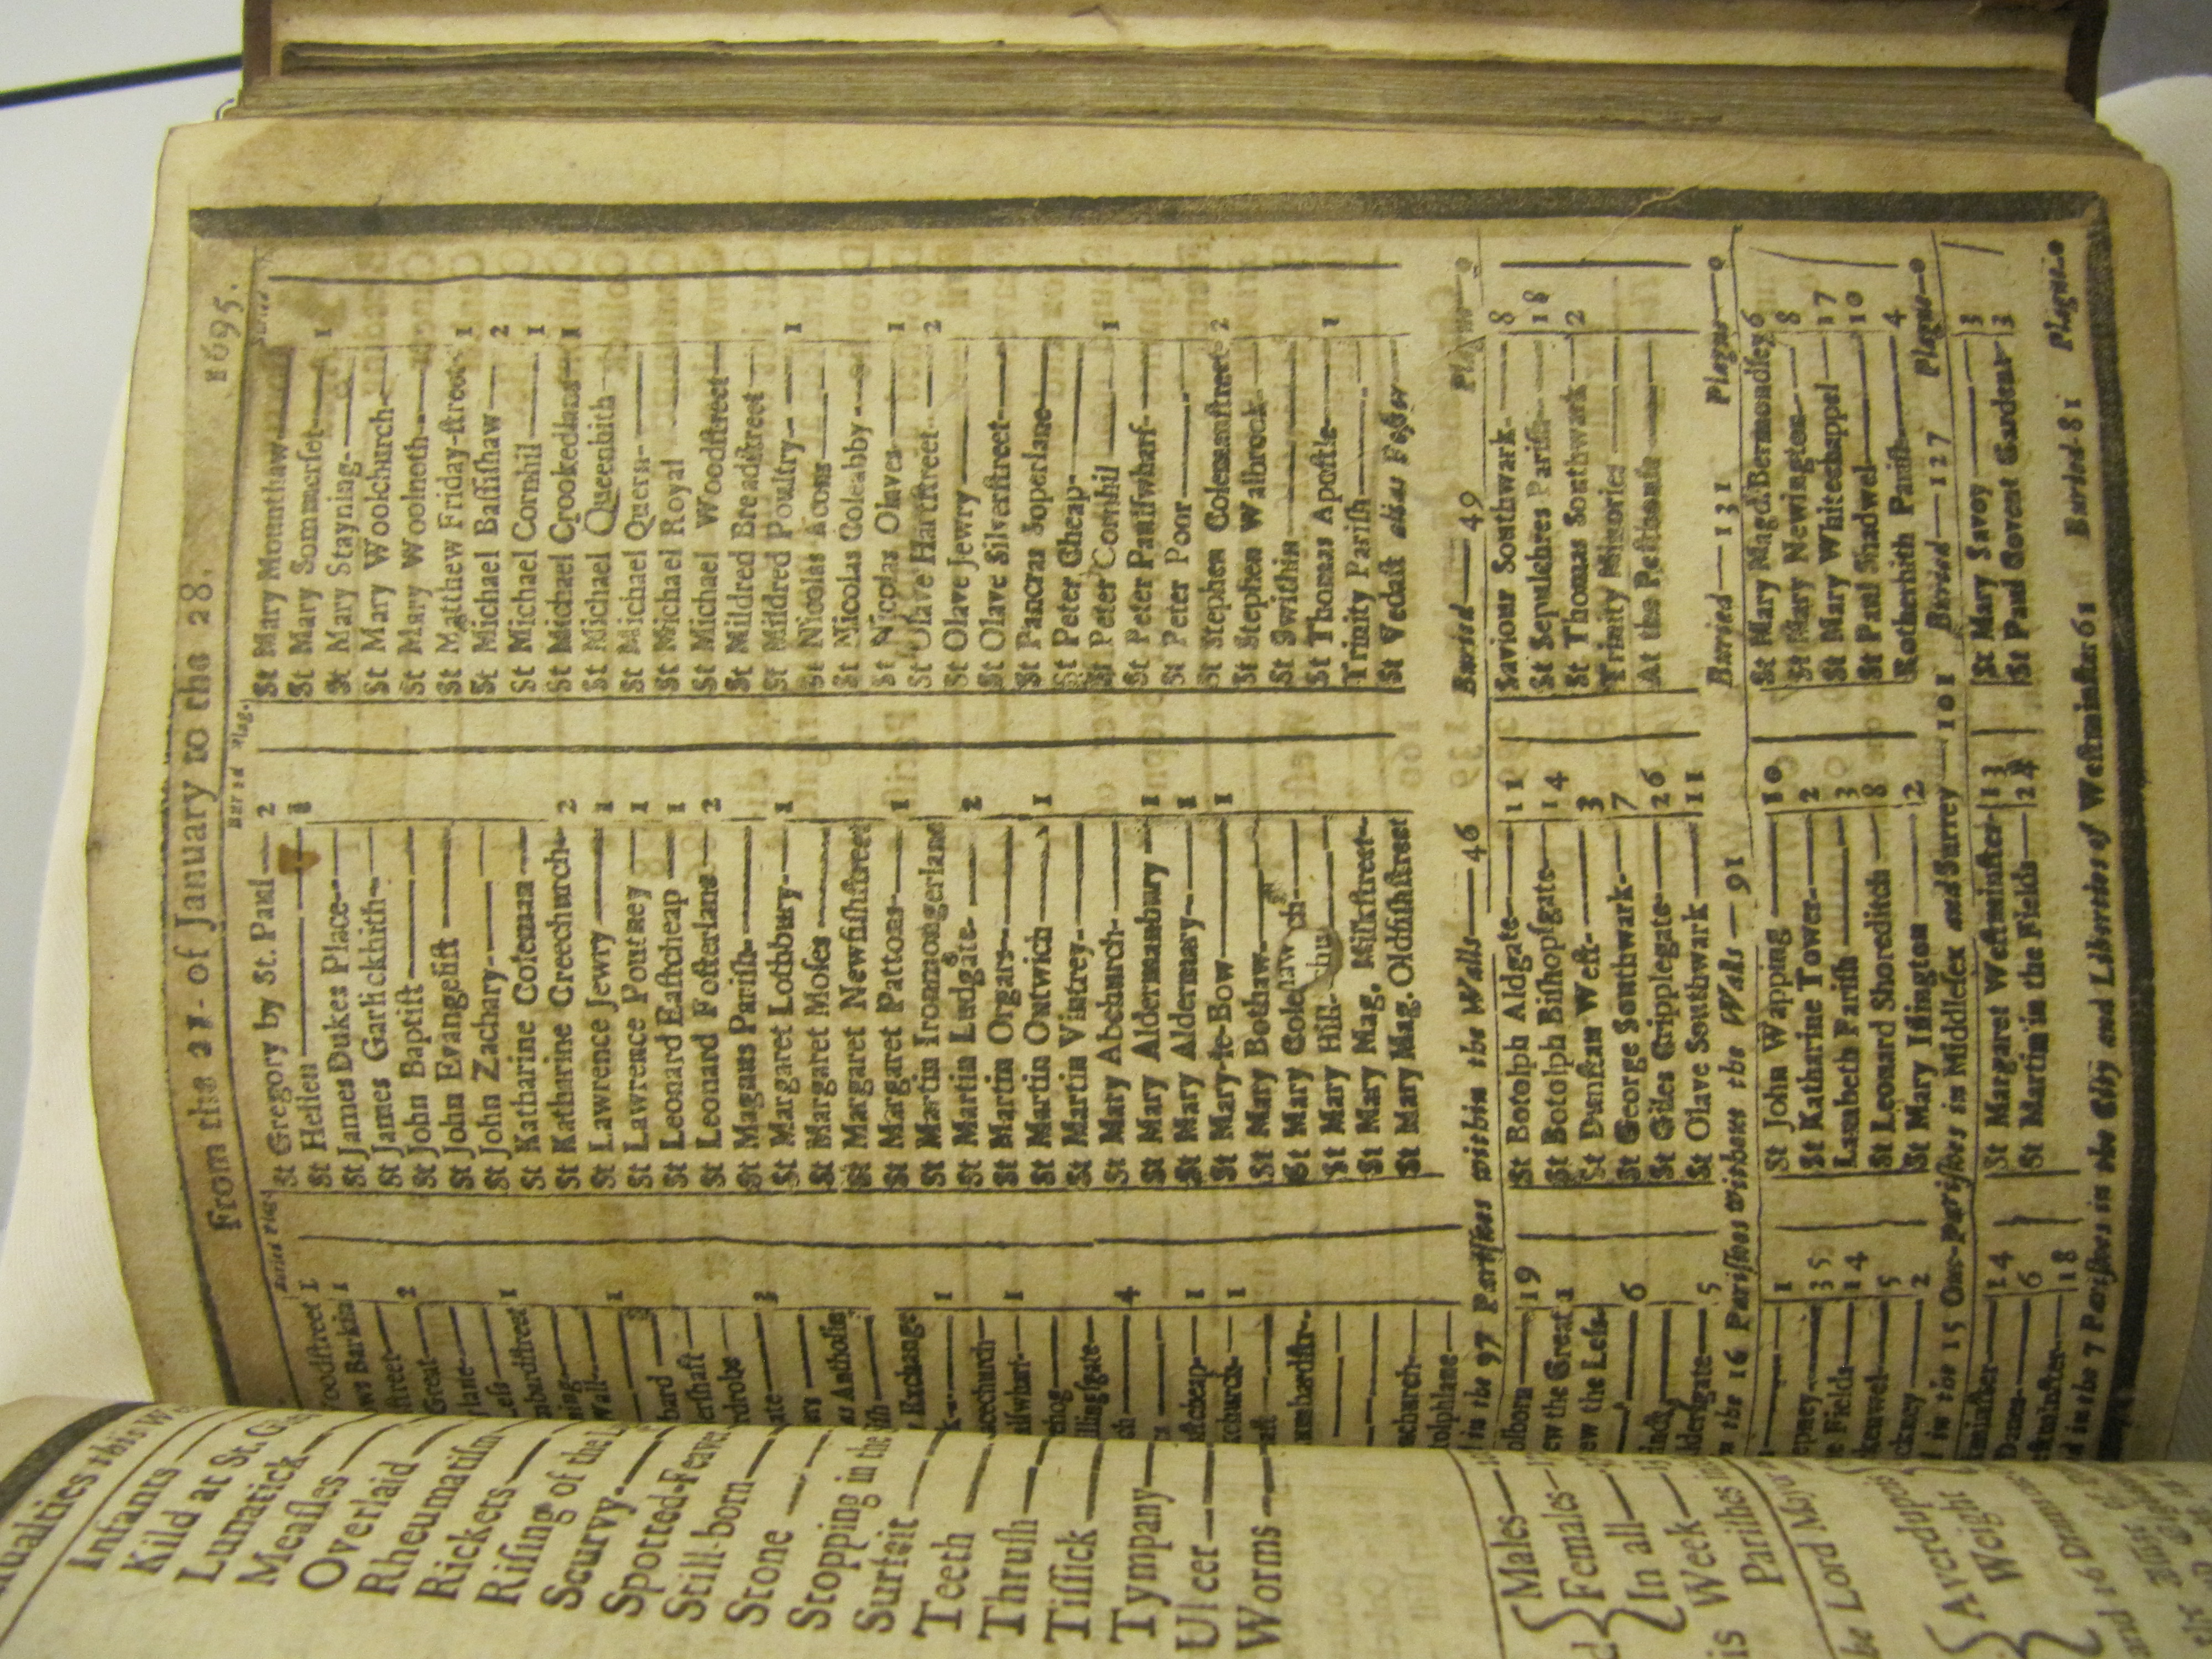 From the 21. of January to the 28. 1695.
Buried Plag.
Buried Plag.
Woodſtreet 1
Barkin 1
ſtreet— 2
Great—
lane—
Leſs— 1
mbardſtreet 1
Wall—
1
bard
erſhaft
rdrobe 3
Antholin
Exchange
1
acechurch—
1
llingſgate—
4
aſtcheap— 1
1
ambardſtr—
nchurch—
tolphlane—
St Gregory by St. Paul— 2
St Hellen— 1
St James Dukes Place—
St James Garlickhith—
St John Baptiſt—
St John Evangeliſt—
St John Zachary—
St Katharine Coleman—
St Katharine Creechurch— 2
St Lawrence Jewry— 1
St Lawrence Pountney— 1
St Leonard Eaſtcheap— 1
St Leonard Foſterlane— 2
St Magnus Pariſh—
St Margaret Lothbury— 1
St Margaret Moſes—
St Margaret Newfiſhſtreet
St Margaret Pattons— 1
St Martin Ironmongerlane
St Martin Ludgate— 2
St Martin Orgars—
St Martin Outwich— 1
St Martin Vintrey—
St Mary Abchurch—
St Mary Aldermanbury— 1
St Mary Aldermary— 1
St Mary-le-Bow— 1
St Mary Bothaw—
St Mary Cole ch—
St Mary Hill—
St Mary Mag. Milkſtreet—
St Mary Mag. Oldfiſhſtreet
St Mary Mounthaw—
St Mary Sommerſet— 1
St Mary Stayning—
St Mary Woolchurch—
St Mary Woolnoth—
St Matthew Friday-ſtreet 1
St Michael Baſſiſhaw— 2
St Michael Cornhil— 1
St Michael Crookedlane— 1
St Michael Queenhith—
St Michael Quern—
St Michael Royal
St Michael Woodſtreet—
St Mildred Breadſtreet—
St Mildred Poultry— 1
St Nicolas Acons—
St Nicolas Coleabby—
St Nicolas Olaves— 1
St Olave Hartſtreet— 2
St Olave Jewry—
St Olave Silverſtreet—
St Pancras Soperlane—
St Peter Cheap—
St Peter Cornhil— 1
St Peter Paulſwharf—
St Peter Poor—
St Stephen Colemanſtreet 2
St Stephen Walbrook—
St Swithin—
St Thomas Apoſtle— 1
Trinity Pariſh—
St Vedaſt alias Foſter—
in the 97 Pariſhes within the Walls— 46 Buried— 49 Plague— 0
olborn— 19
ew the Great 1
ew the Leſs—
6
derſgate— 5
St Botolph Aldgate— 11
St Botolph Biſhopſgate— 14
St Dunſtan Weſt— 3
St George Southwark— 7
St Giles Cripplegate— 26
St Olave Southwark— 11
Saviour Southwark— 8
St Sepulchres Pariſh— 18
St Thomas Southwark— 2
Trinity Minories
At the Peſthouſe
the 16 Pariſhes without the Walls— 91 Buried— 131 Plague— 0
1
epney— 35
Fields— 14
kenwel— 5
ckney— 2
St John Wapping— 10
St Katharine Tower— 2
Lambeth Pariſh— 3
St Leonard Shoreditch— 8
St Mary Iſlington— 2
St Mary Magd. Bermondſey 6
St Mary Newington— 8
St Mary Whitechappel— 17
St Paul Shadwel— 10
Rotherhith Pariſh— 4
in the 15 Out-Pariſhes in Middleſex and Surrey— 101 Buried— 127 Plague— 0
14
Danes— 6
eſtminſter— 18
St Margaret Weſtminſter 13
St Martin in the Fields— 24
St Mary Savoy— 3
St Paul Covent Garden— 3
in the 7 Pariſhes in the City and Liberties of Weſtminſter 61 Buried 81 Plague— 0
ſualties this We
Infants—
Kild at St. Giles
Lunatick—
Meaſles—
Overlaid—
Rheumatiſm
Rickets—
Riſing of the
Scurvy—
Spotted-Feaver
Still-born—
Stone—
Stopping in the
Surfeit—
Teeth—
Thruſh—
Tiſſick—
Tympany—
Ulcer—
Worms—
Males—
Females—
In all—
is Week
Pariſhes
he Lord Mayor
Averdupois
Weight
and 16 Drams